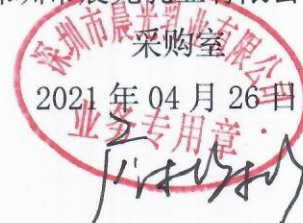 采购室
2021 年 04 月 26 日
深圳市晨光乳业有限公司
业务专用章